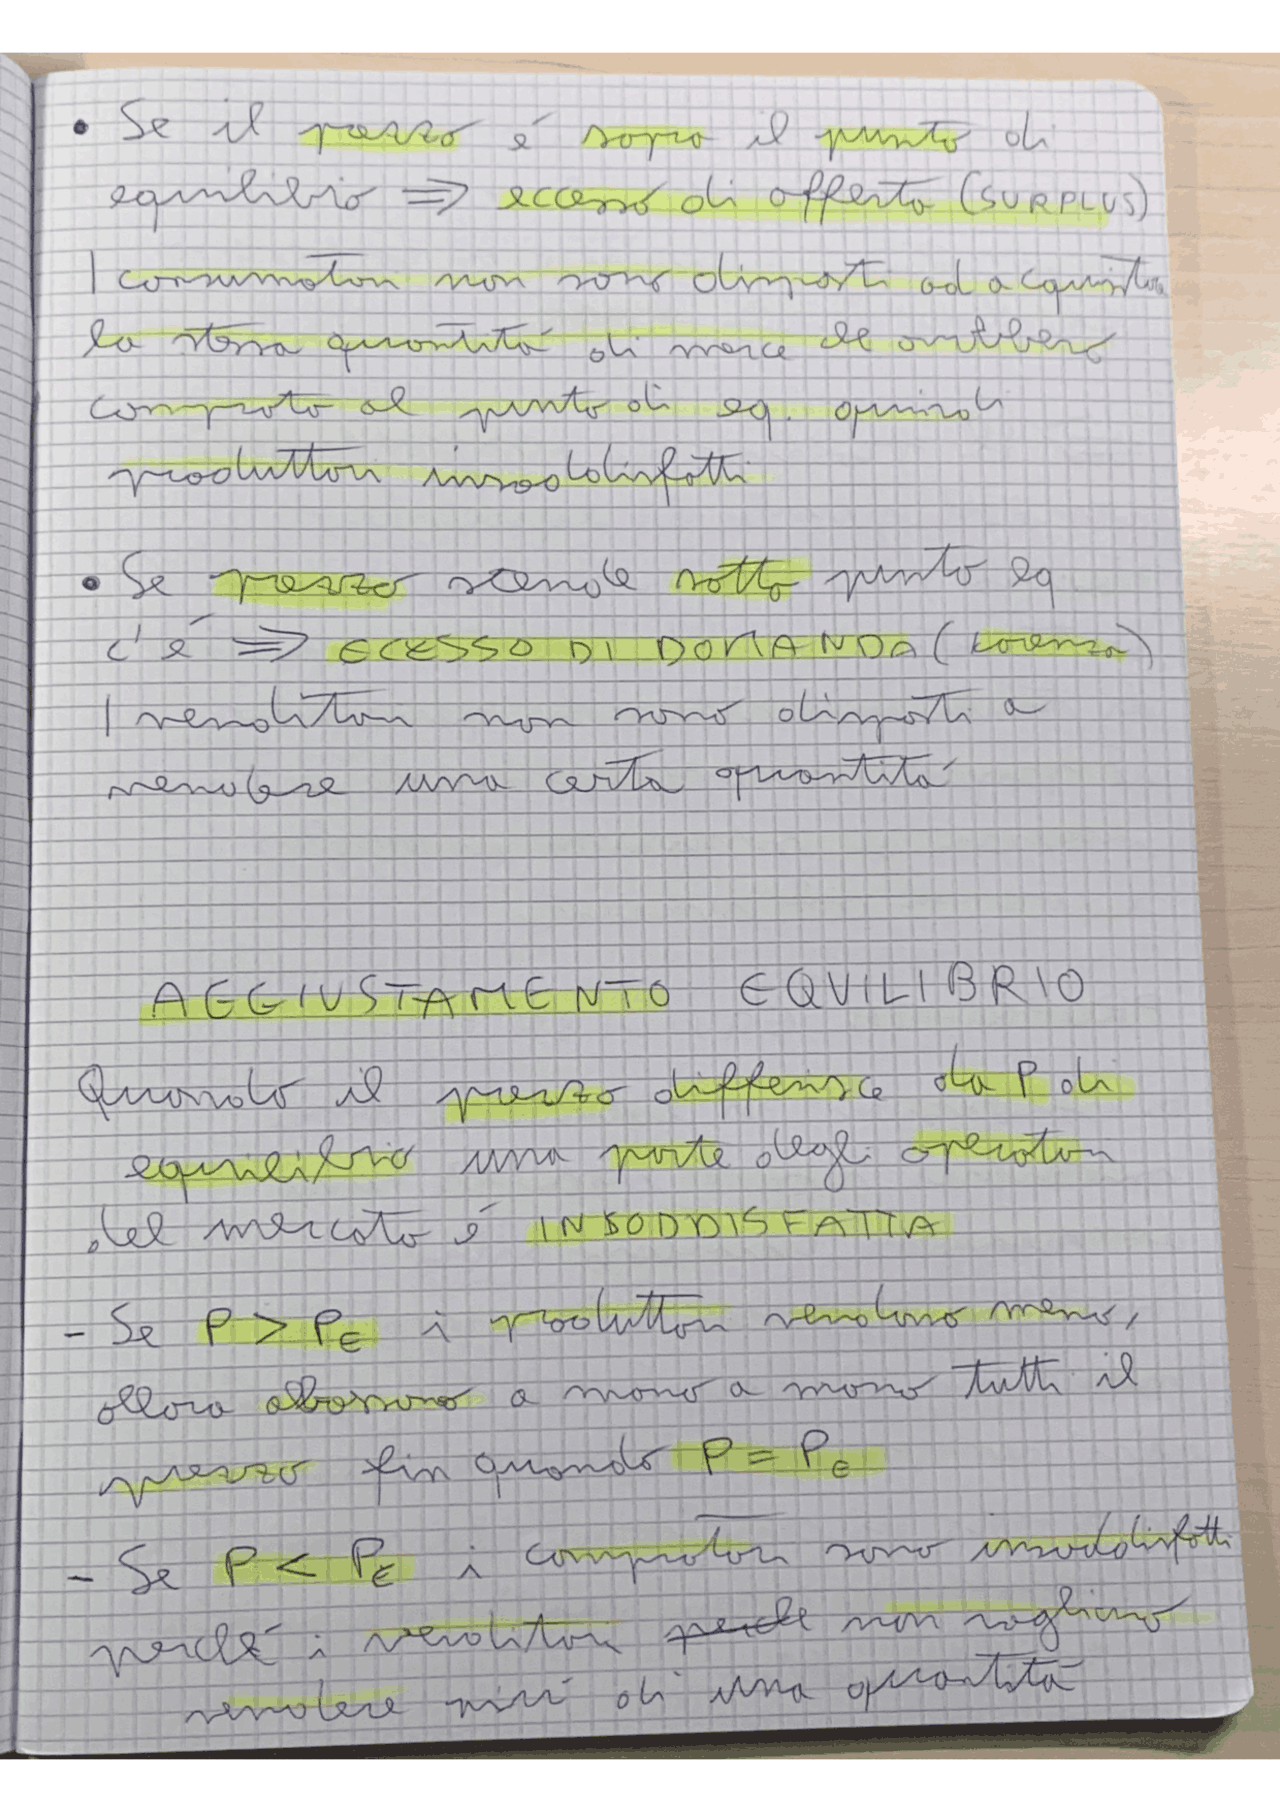 • Se il prezzo é sopra il punto di
equilibrio ⇒ eccesso di offerta (SURPLUS)
I consumatori non sono disposti ad acquistare
la stessa quantitá di merce che avrebbero
comprato al punto di eq. quindi
produttori insoddisfatti
• Se prezzo scende sotto punto eq
c'é ⇒ ECESSO DI DOMANDA (Carenza)
I venditori non sono disposti a
vendere una certa quantitá
AGGIUSTAMENTO EQUILIBRIO
Quando il prezzo differisce da P di
equilibrio una parte degli operatori
del mercato é INSODDISFATTA
- Se P > PE i produttori vendono meno,
allora abbassano a mano a mano tutti il
prezzo fin quando P = PE
- Se P < PE i compratori sono insoddisfatti
perché i venditori perche non vogliono
vendere piú di una quantitá